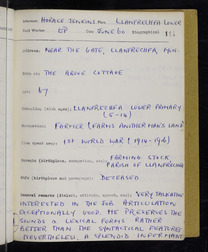 Informant HORACE JENKINS From LLANFRECHFA LOWER
Fieldworker DP Date JUNE 60 Biographical
Address: NEAR THE GATE, LLANFRECHFA, MON.
Born at: THE ABOVE COTTAGE
Age: 67
Schooling (with ages): LLANFRECHFA LOWER PRIMARY
(5-14)
FARMER (FARMS ANOTHER MAN'S LAND)
1ST WORLD WAR (1914-1916)
Parents (birthplace, occupation, etc): FARMING STOCK,
PARISH OF LLANFRECHFA
Wife (birthplace and ages): DECEASED
General remarks (dialect, attitude, speech, etc): VERY TALKATIVE
INTERESTED IN THE JOB. ARTICULATION
EXCEPTIONALLY GOOD. HE PRESERVES THE
SOUNDS & LEXICAL FORMS RATHER
BETTER THAN THE SYNTACTICAL FEATURES.
NEVERTHELESS, A SPLENDID INFORMANT